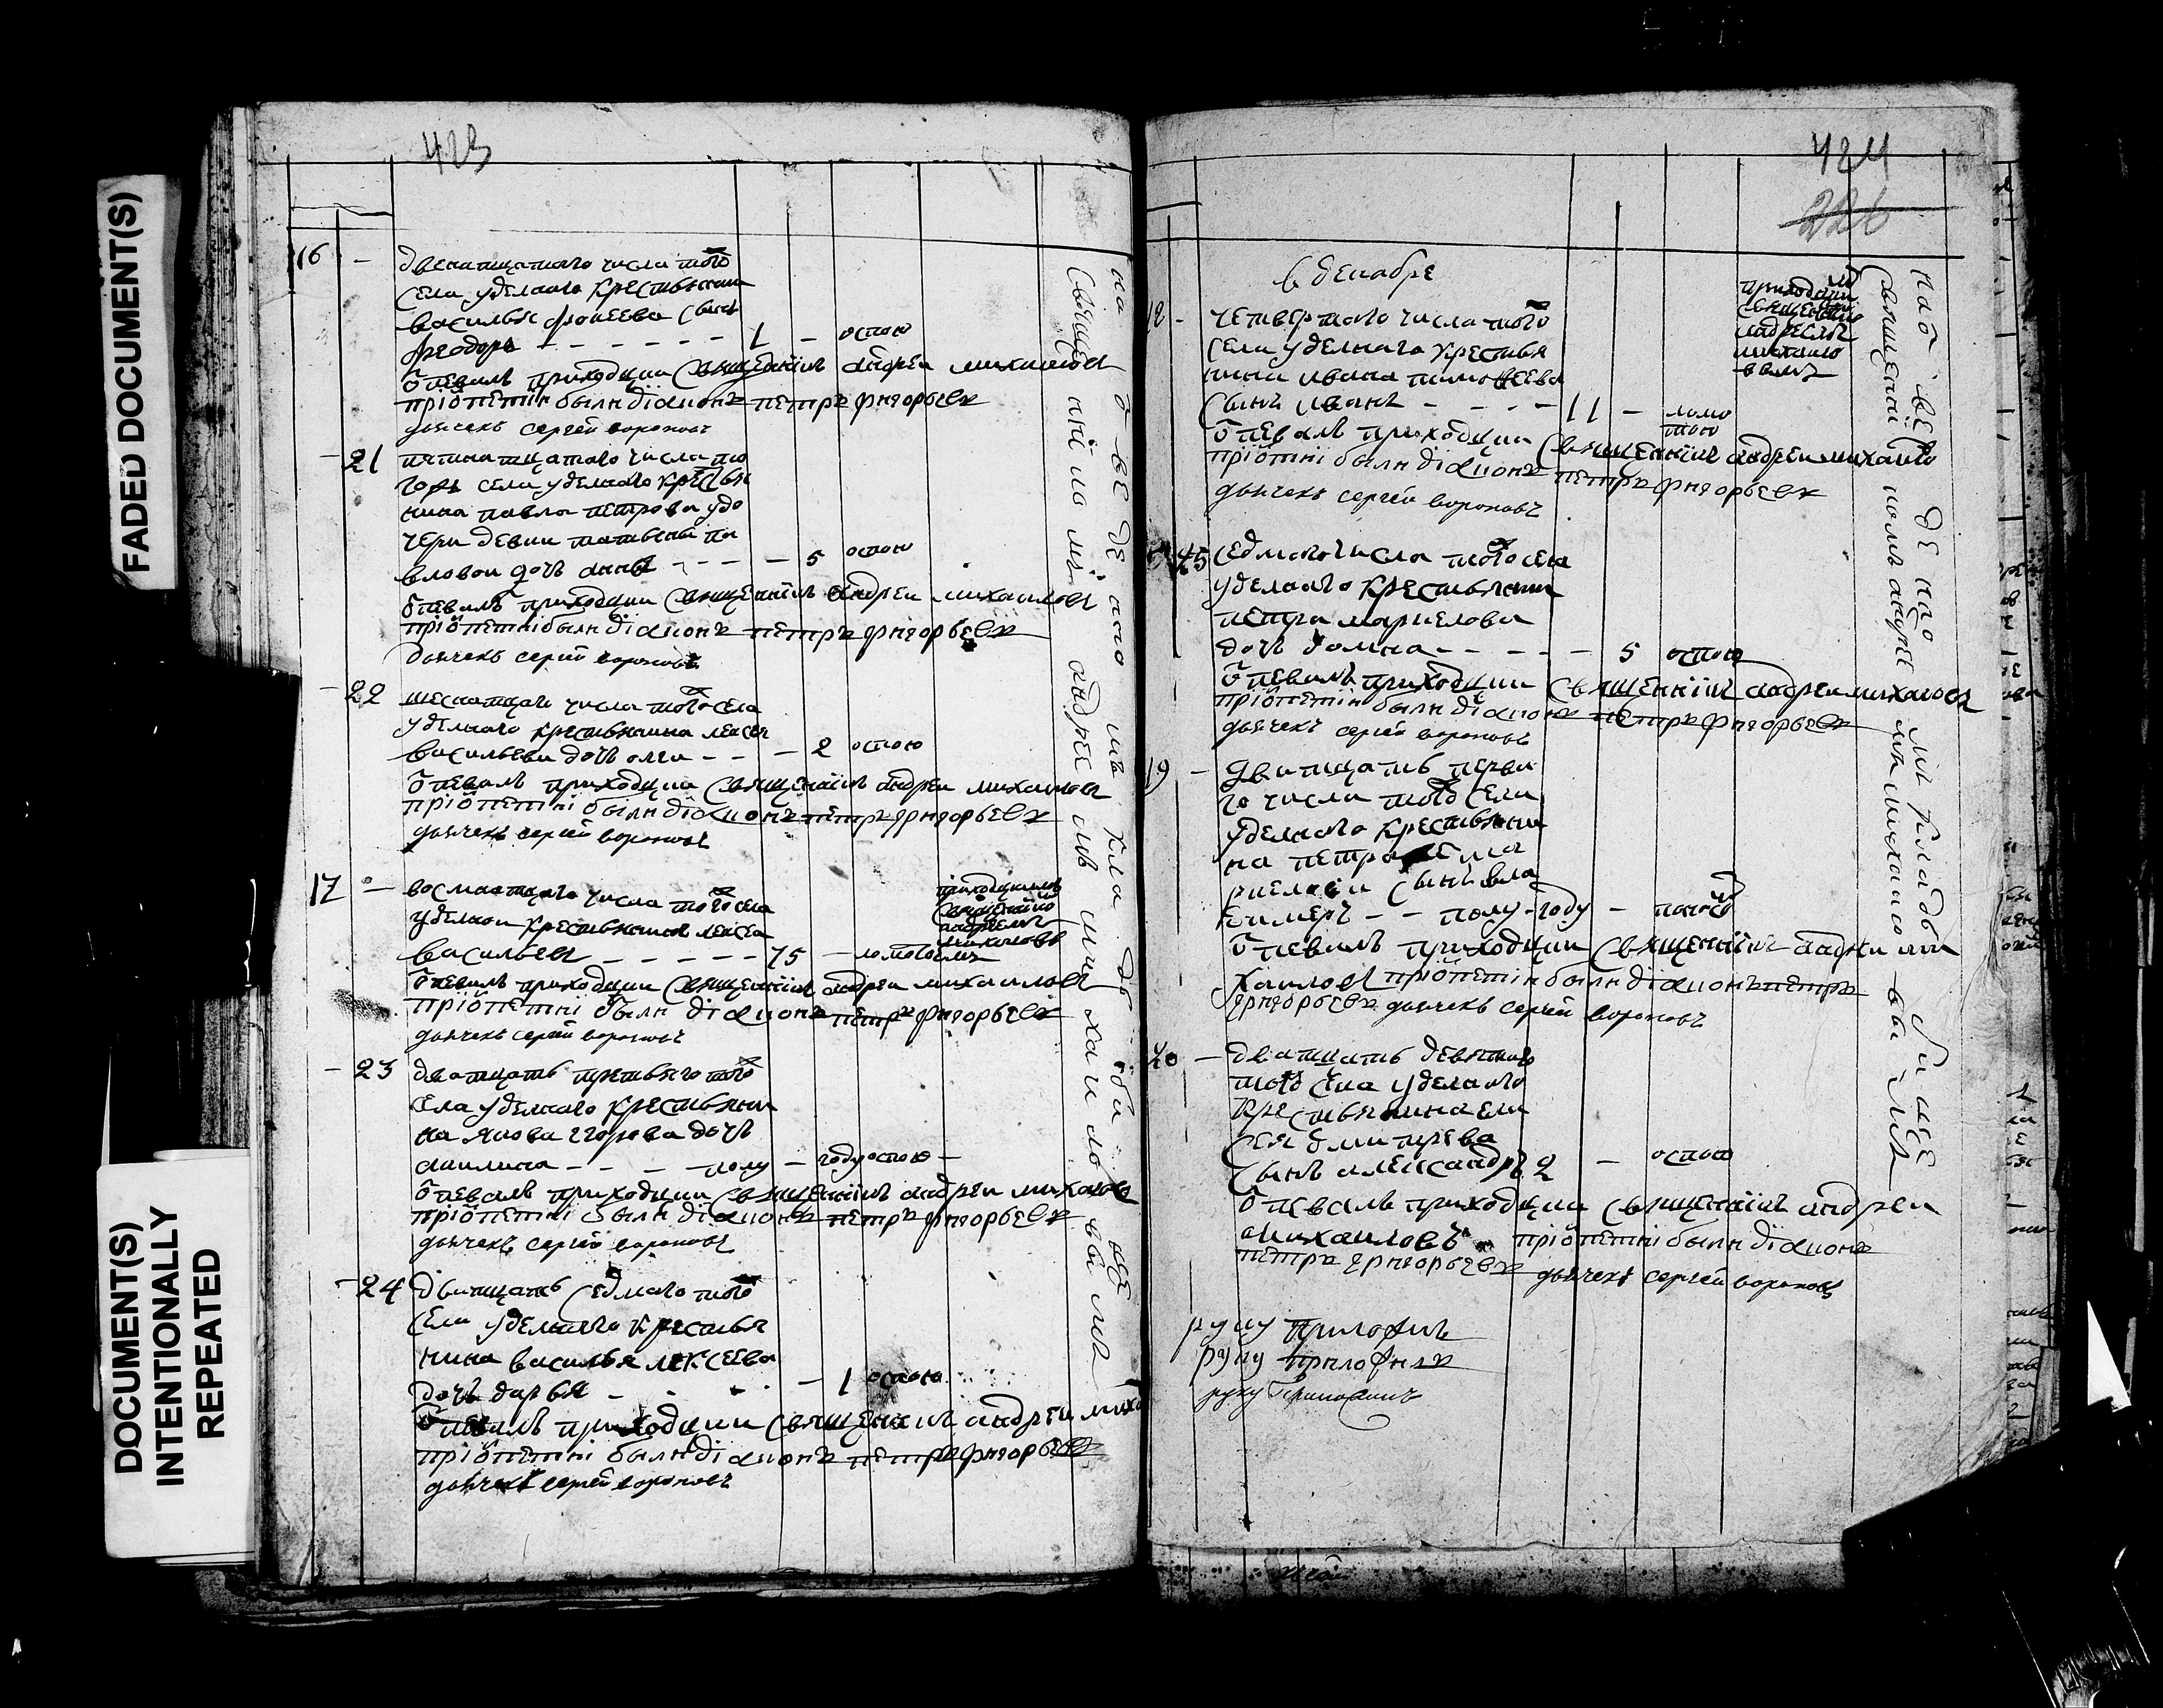 FADED DOCUMENT(S)
DOCUMENT(S)
INTENTIONALLY
REPEATED
423
16 -
двенатцатаго числа того
села уделнаго крестьянина
василья сынъ
феодоръ - - - - - - 1 - оспою
отпевалъ приходцки священникъ андреи михаиловъ
при отпетіи были діаконъ петръ григорьевъ
дьячекъ сергей вороновъ
- 21 пятнатцатаго числа то
гожъ села уделнаго крестья
нина павла петрова у до
чери девки татьяны па
вловои дочь анна - - - - 5 оспою
отпевалъ приходцки священникъ андреи михаиловъ
при отпетіи были діаконъ петръ григорьевъ
дьячекъ сергей вороновъ
- 22 шеснатцаго числа того села
уделнаго крестьянина алексея
васильева дочь - - - 2 оспою
отпевалъ приходцки священникъ андреи михаиловъ
при отпетіи были діаконъ петръ григорьевъ
дьячекъ сергей вороновъ
17 - восмнатцаго числа того села
уделнои крестьянинъ алексеи
васильевъ - - - - - 75 - ломотою
приходцкимъ
священно
андреемъ
михаиловы
мъ
отпевалъ приходцки священникъ андреи михаиловъ
при отпетіи были діаконъ петръ григорьевъ
дьячекъ сергей вороновъ
- 23 дватцать третьяго того
села уделнаго крестьяни
на якова егорова дочь
акилина - - - полу - году оспою -
отпевалъ приходцки священникъ андреи михаиловъ
при отпетіи были діаконъ петръ григорьевъ
дьячекъ сергей вороновъ
- 24 дватцать седмаго того
села уделнаго крестья
нина василья алексеева
дочь дарья - - - - 1 оспою
отпевалъ приходцки священникъ андреи миха
при отпетіи были діаконъ петръ григорьевъ
дьячекъ сергей вороновъ
на отведеаномъ кладбище
священникомъ андреемъ михаиловымъ
424
226
в декабре
18 - четвертаго числа того
села уделнаго крестья
нина ивана тимофеева
сынъ иванъ - - - - 11 - ломо
тою
приходцки
священно
андреемъ
михаило
вымъ
отпевалъ приходцки священникъ андреи михаило
при отпетіи были діаконъ петръ григорьевъ
дьячекъ сергей вороновъ
25 седмаго числа того села
уделнаго крестьянина
петра маркелова
дочь домна - - - - - 5 оспою
отпевалъ приходцки священникъ андреи михаиловъ
при отпетіи были діаконъ петръ григорьевъ
дьячекъ сергей вороновъ
19 - дватцать перва
го числа того села
уделнаго крестьяни
на петра ма
ркелова сынъ вла
димеръ - - полу - году -
отпевалъ приходцки священникъ андреи ми
хаиловъ при отпетіи были діаконъ петръ
григорьевъ дьячекъ сергей вороновъ
20 - дватцать девятаго
того села уделнаго
крестьянина ели
сея дмитрева
сынъ александръ 2 - оспою
отпевалъ приходцки священникъ андреи
михаиловъ при отпетіи были діаконъ
петръ григорьевъ дьячекъ сергей вороновъ
руку приложилъ
руку приложилъ
руку приложилъ